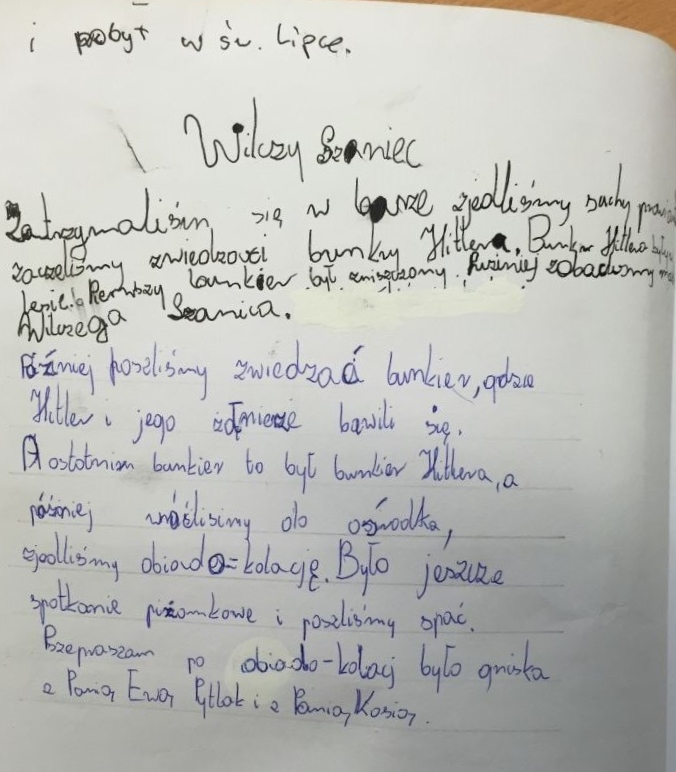 i pobyt w św. Lipce.
Wilczy Szaniec
Zatrzymaliśm się w barze zjedliśmy suchy
zaczeliśmy zwiedzać bunkry Hitlera. Bunkier Hitlera
Pierwszy bunkier był zniszczony. Puźniej zobaczyliśmy
Wilczega Szanica.
Później poszliśmy zwiedzać bunkier, gdzie
Hitler i jego żołnierze bawili się.
A ostotnim bunkier to był bunkier Hitlera, a
później wróclisimy do ośrodka,
zjedliśmy obiado=kolację. Było jeszcze
spotkanie piżomkowe i poszliśmy spać.
Przepraszam po obiado-kolacj było gniska
z Panią Ewą Pytlak i z Panią Kasią.